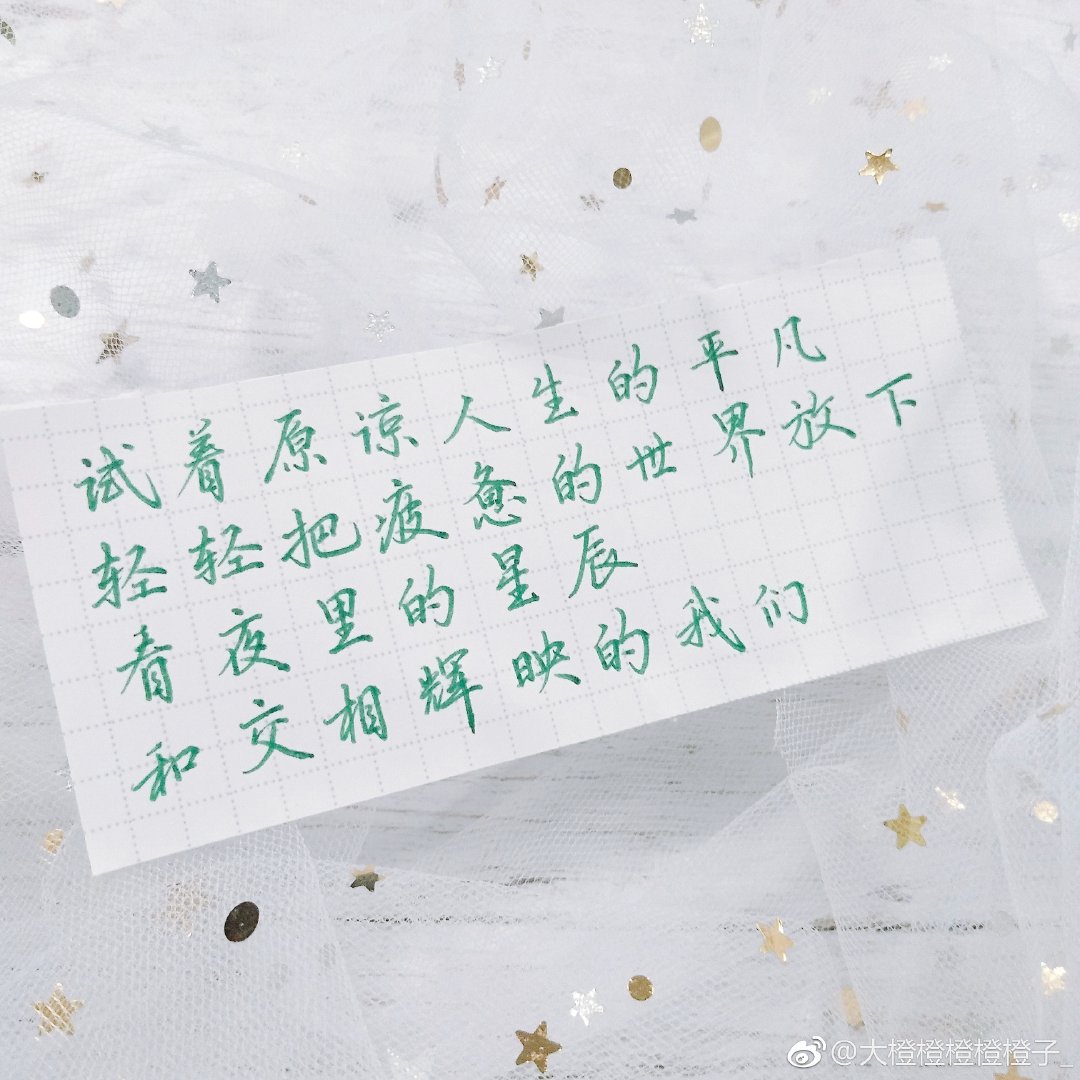 试着原谅人生的平凡
轻轻把疲惫的世界放下
看夜里的星辰
和交相辉映的我们
@大橙橙橙橙橙子_